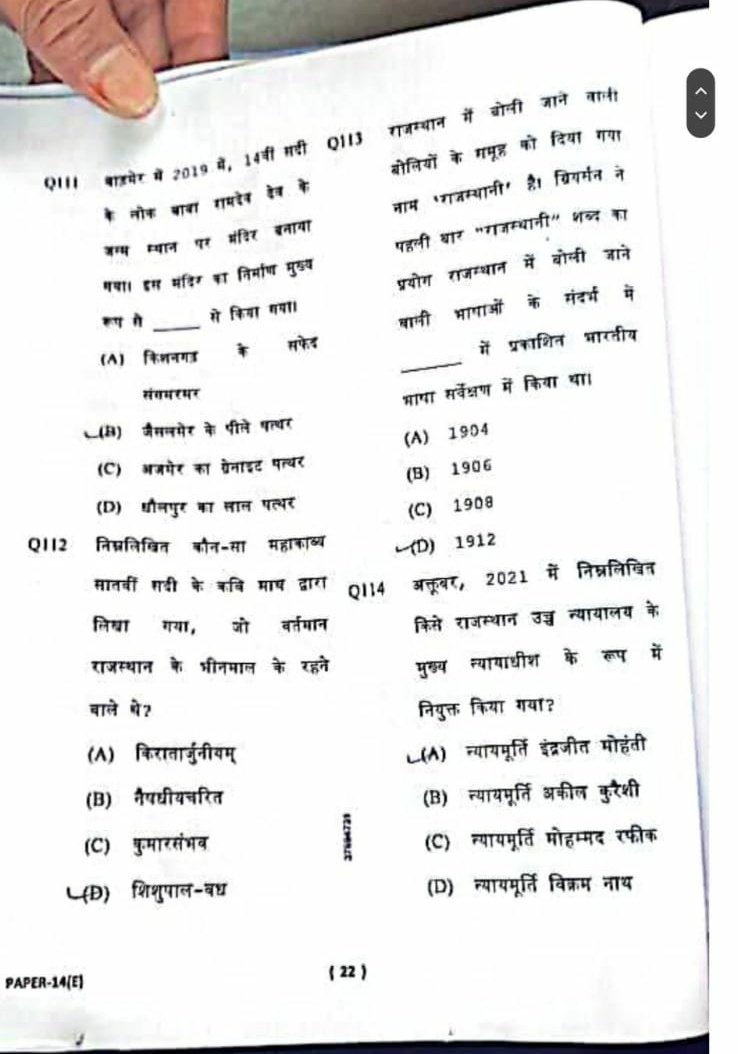 Q111 बाड़मेर में 2019 में, 14वीं सदी
के लोक बाबा रामदेव देव के
जन्म स्थान पर मंदिर बनाया
गया। इस मंदिर का निर्माण मुख्य
रूप से ______ से किया गया।
(A) किशनगढ़ के सफेद
संगमरमर
(B) जैसलमेर के पीले पत्थर
(C) अजमेर का ग्रेनाइट पत्थर
(D) धौलपुर का लाल पत्थर
Q112 निम्नलिखित कौन-सा महाकाव्य
सातवीं सदी के कवि माघ द्वारा
लिखा गया, जो वर्तमान
राजस्थान के भीनमाल के रहने
वाले थे?
(A) किरातार्जुनीयम्
(B) नैषधीयचरित
(C) कुमारसंभव
(D) शिशुपाल-वध
Q113 राजस्थान में बोली जाने वाली
बोलियों के समूह को दिया गया
नाम 'राजस्थानी' है। ग्रियर्सन ने
पहली बार "राजस्थानी" शब्द का
प्रयोग राजस्थान में बोली जाने
वाली भाषाओं के संदर्भ में
______ में प्रकाशित भारतीय
भाषा सर्वेक्षण में किया था।
(A) 1904
(B) 1906
(C) 1908
(D) 1912
Q114 अक्तूबर, 2021 में निम्नलिखित
किसे राजस्थान उच्च न्यायालय के
मुख्य न्यायाधीश के रूप में
नियुक्त किया गया?
(A) न्यायमूर्ति इंद्रजीत मोहंती
(B) न्यायमूर्ति अकील कुरैशी
(C) न्यायमूर्ति मोहम्मद रफीक
(D) न्यायमूर्ति विक्रम नाथ
PAPER-14(E)
( 22 )